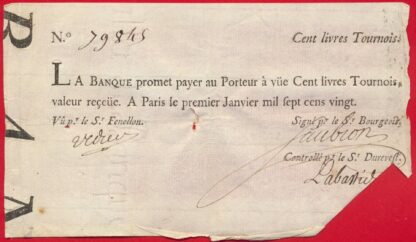 N.o 79845 Cent livres Tournois.
LA BANQUE promet payer au Porteur à vüe Cent livres Tournois,
valeur reçeüe. A Paris le premier Janvier mil sept cens vingt.
Vû p.r le S.r Fenellon. Signé p.r le S.r Bourgeois.
Controllé p.r le S.r Durevest.